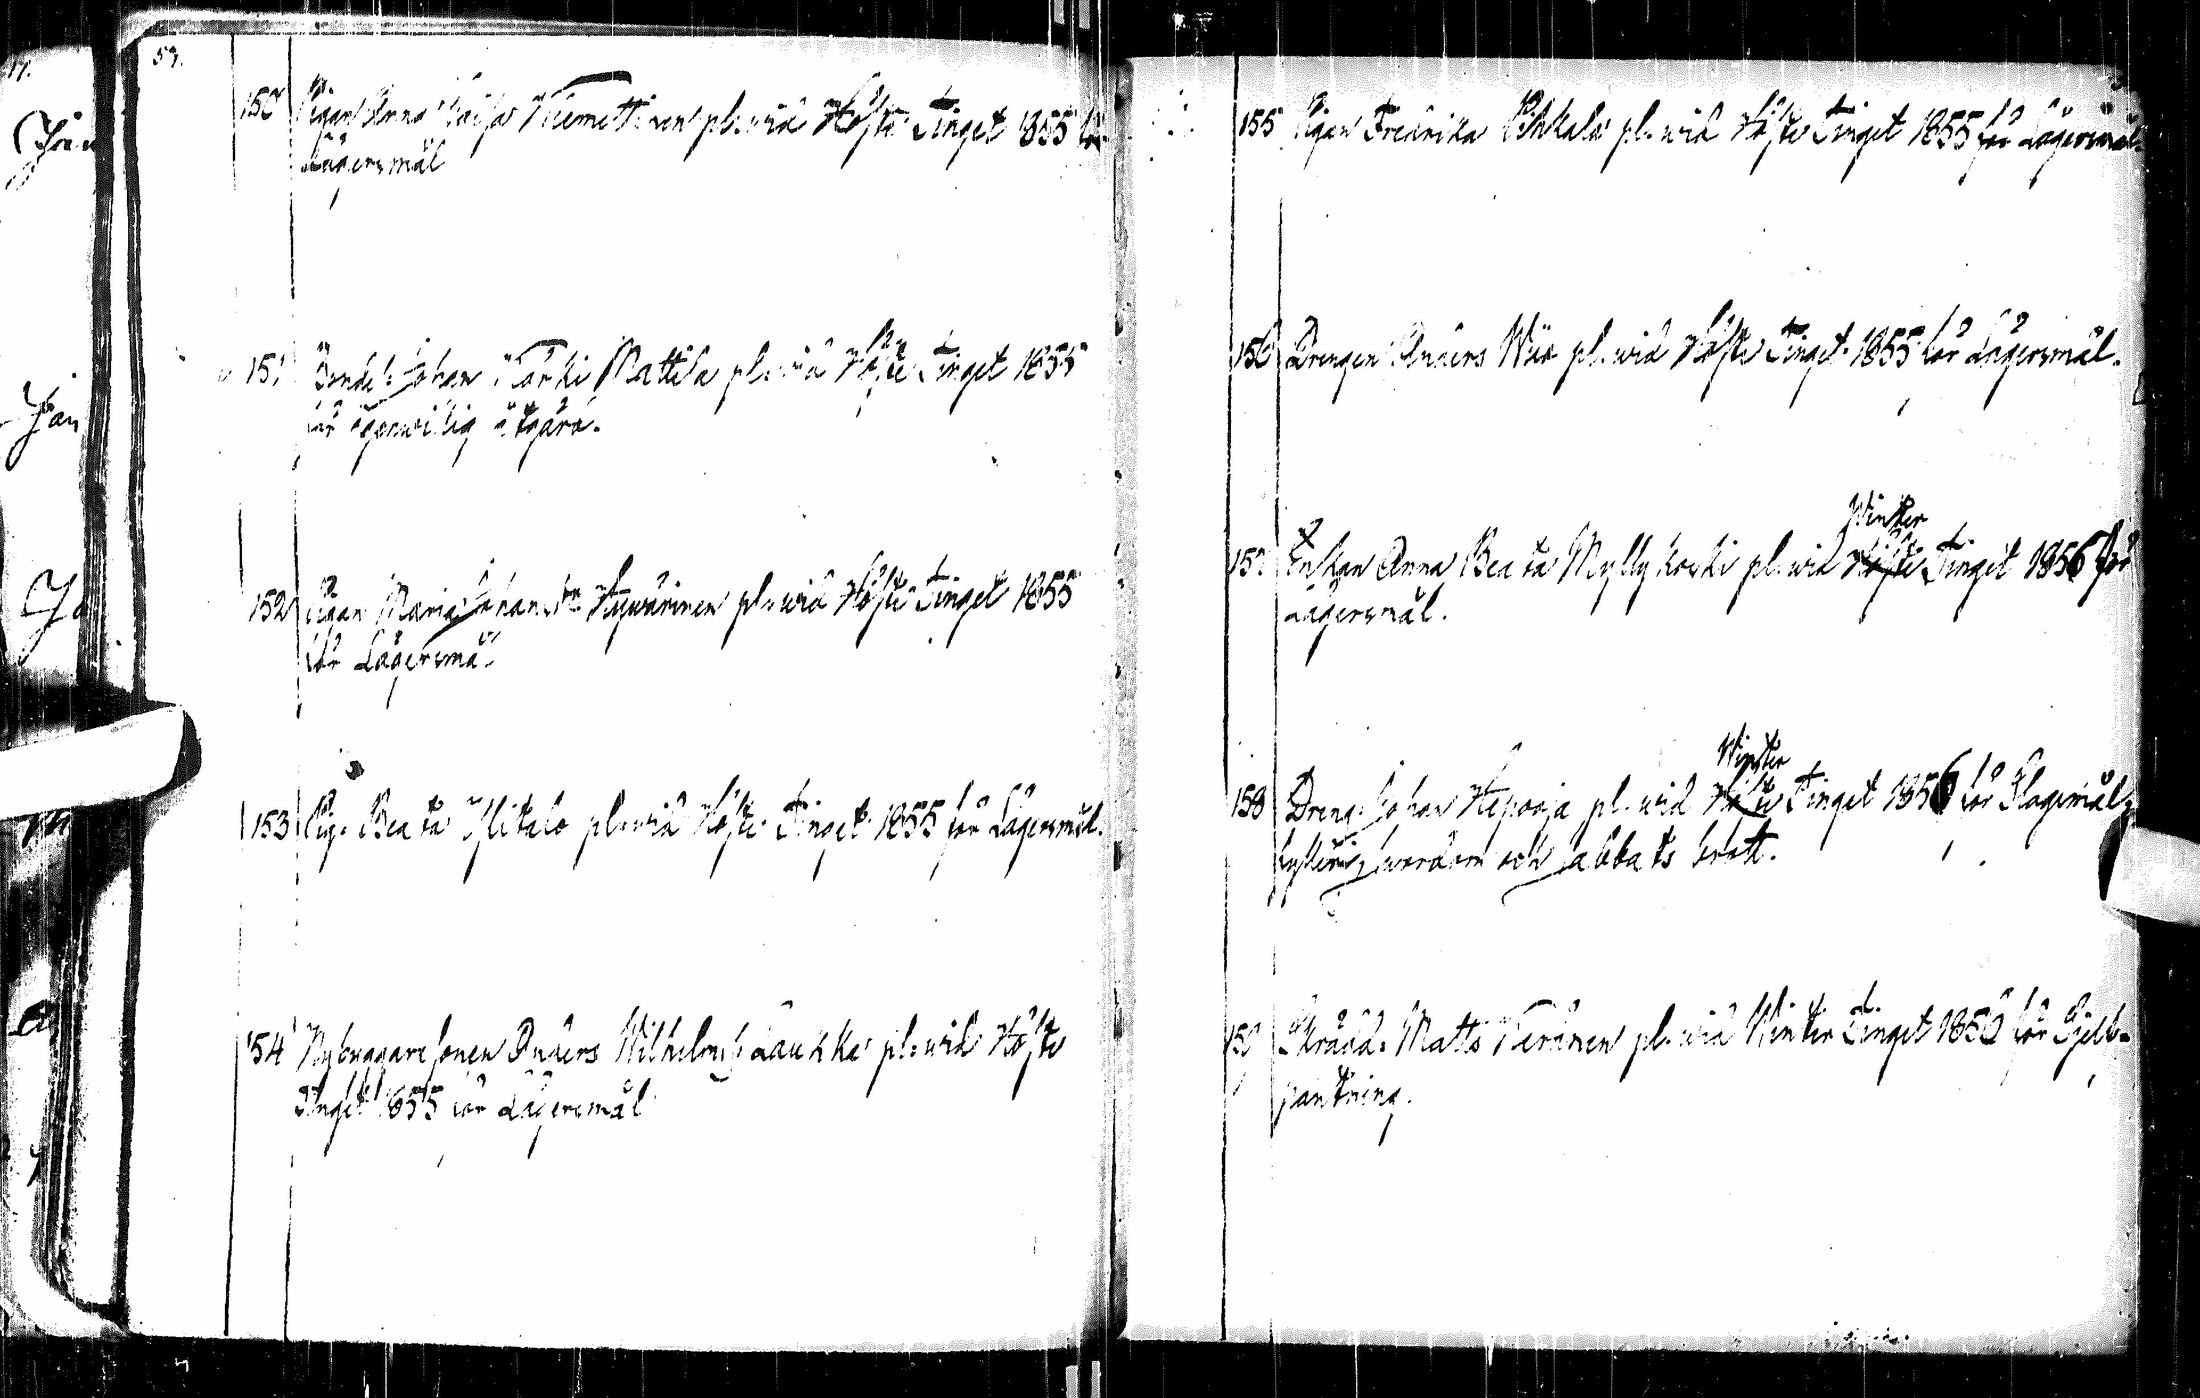 59.
150 Pigan Anna Caisa Niemettinen pl. wid Höste Tinget 1855 för
Lägersmål
151 Bonde S. Johan Kärki Mattila pl. wid Höste Tinget 1855
för egenwillig åtgärd.
152 Pigan Maria Johans dr Hywärinen pl. wid Höste Tinget 1855
för Lägersmål.
153 Pig. Beata Ylitalo pl. wid Höste Tinget 1855 för Lägersmål.
154 Nybyggaresonen Anders Wilhelm Laukka pl. wid Höste
Tinget 1855 för Lägersmål
155 Pigan Fredrika Pihkala pl. wid Höste Tinget 1855 för Lägersmål.
156 Drengen Anders Wiio pl. wid Höste Tinget 1855 för Lägersmål.
Winter
157 Enkan Anna Beata Myllykoski pl. wid Höste Tinget 1856 för
Lägersmål.
Winter
158 Dreng. Johan Heposja pl. wid Höste Tinget 1856 för Slagsmål,
fylleri, swordom och sabbats brott.
159 Skrädd. Matts Keränen pl. wid Winter Tinget 1856 för Sjelf-
pantning.